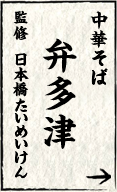 中華そば
弁多津
監修 日本橋たいめいけん
→